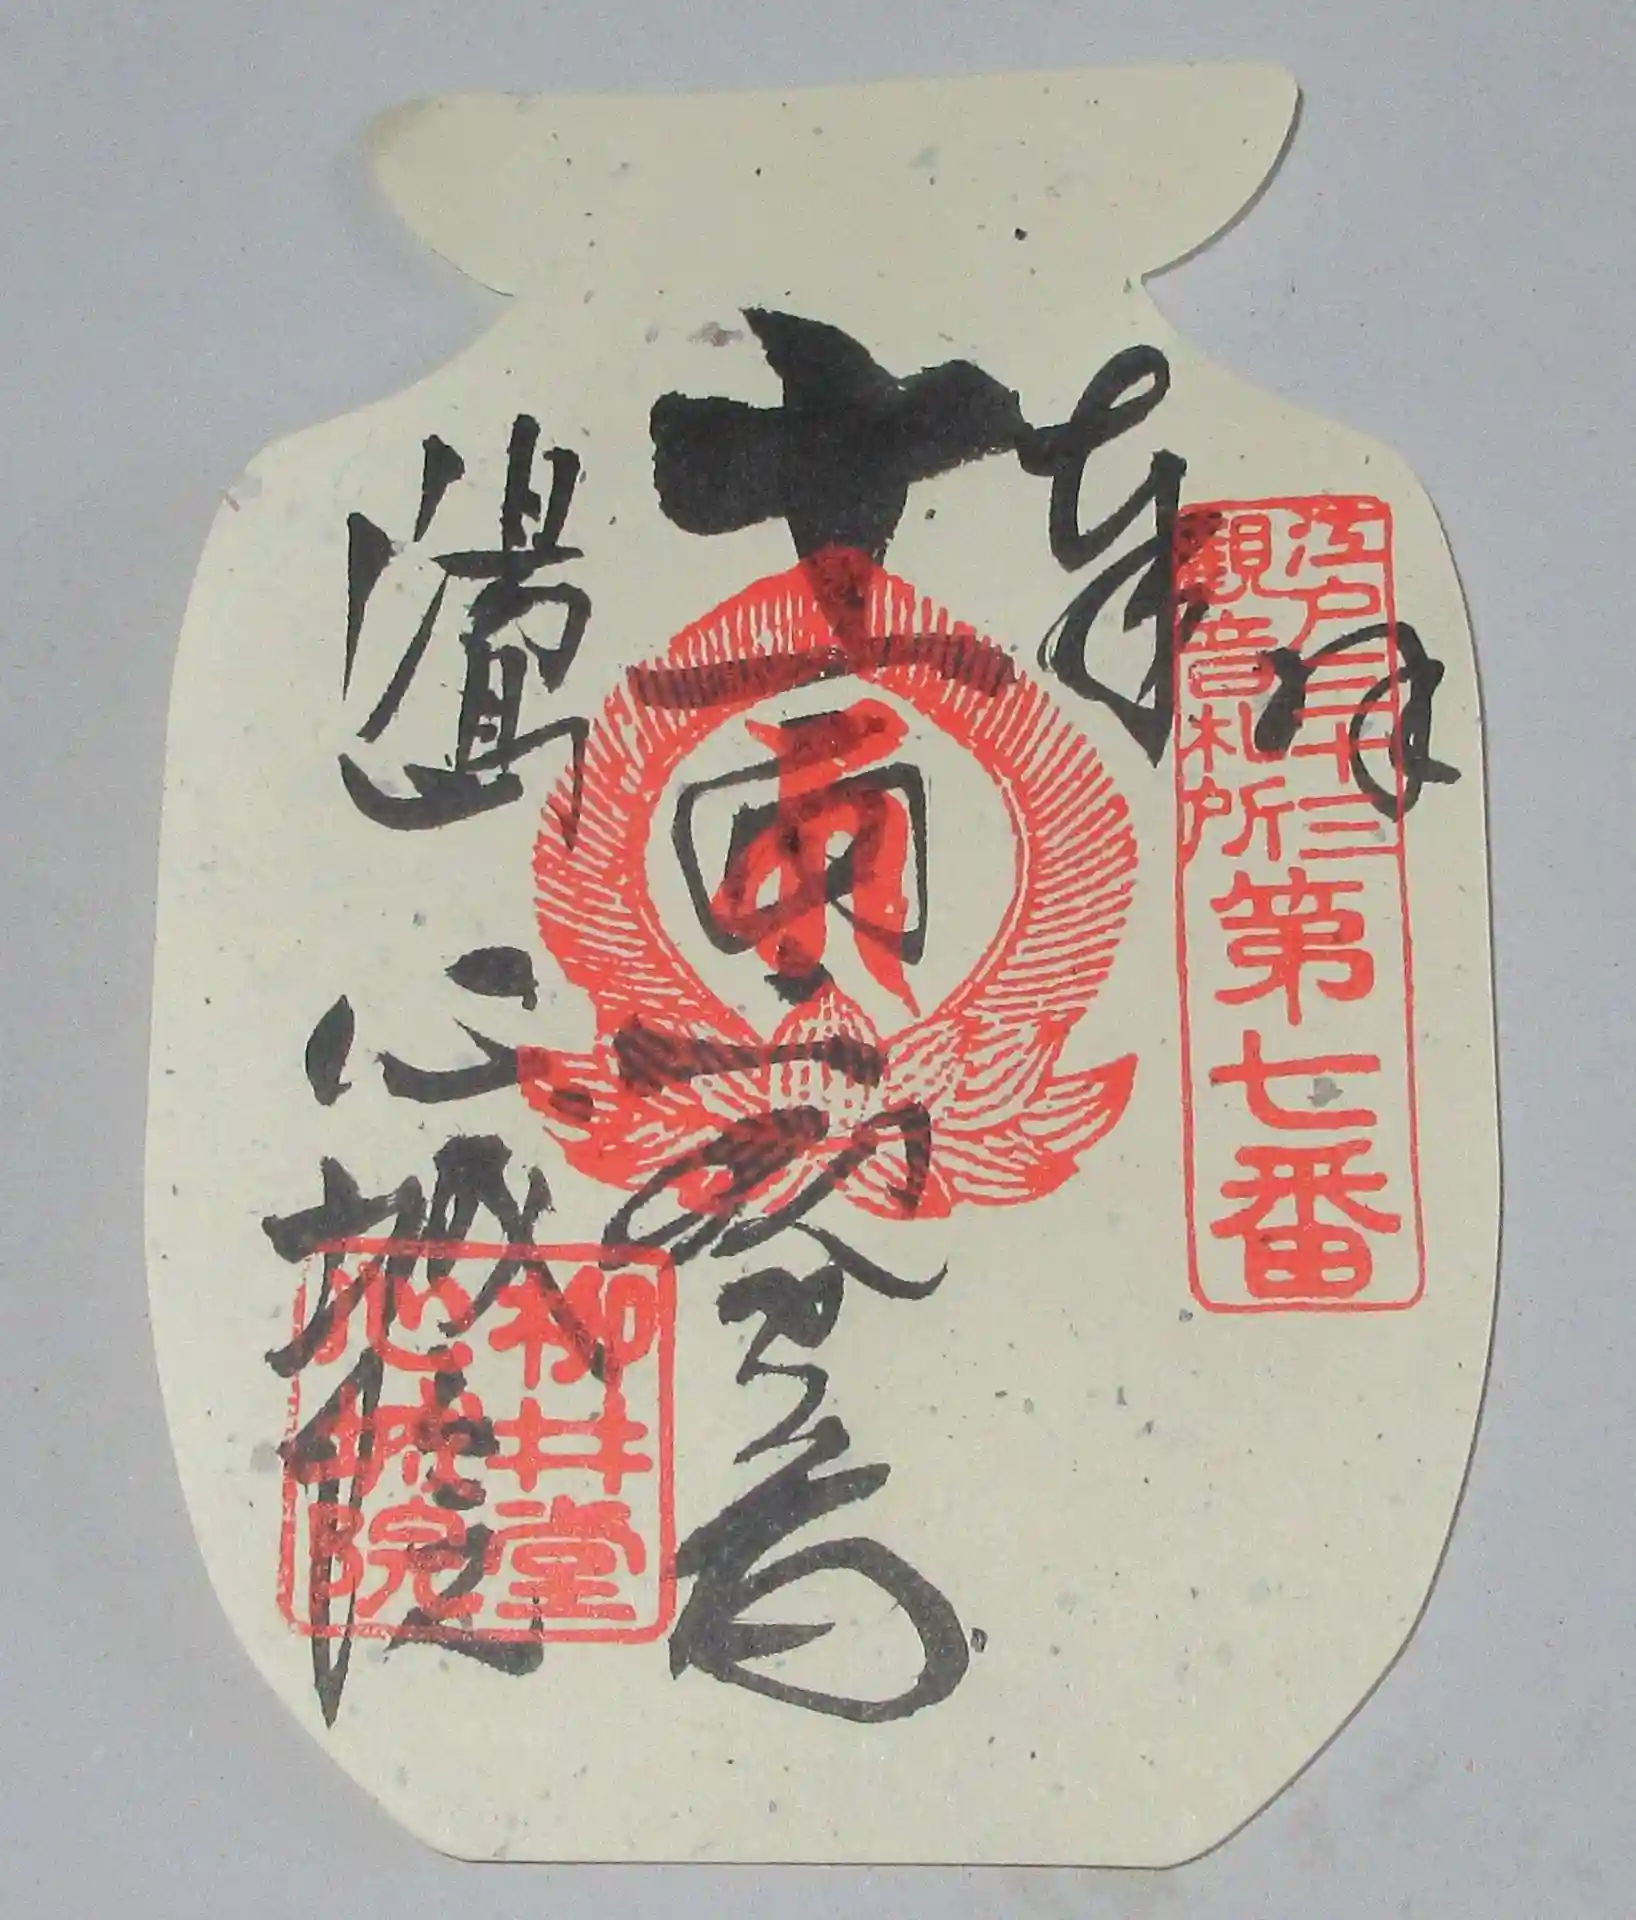 奉拝
江戸三十三
観音札所
第七番
十一面観音
湯島
心城院
柳井堂
心城院